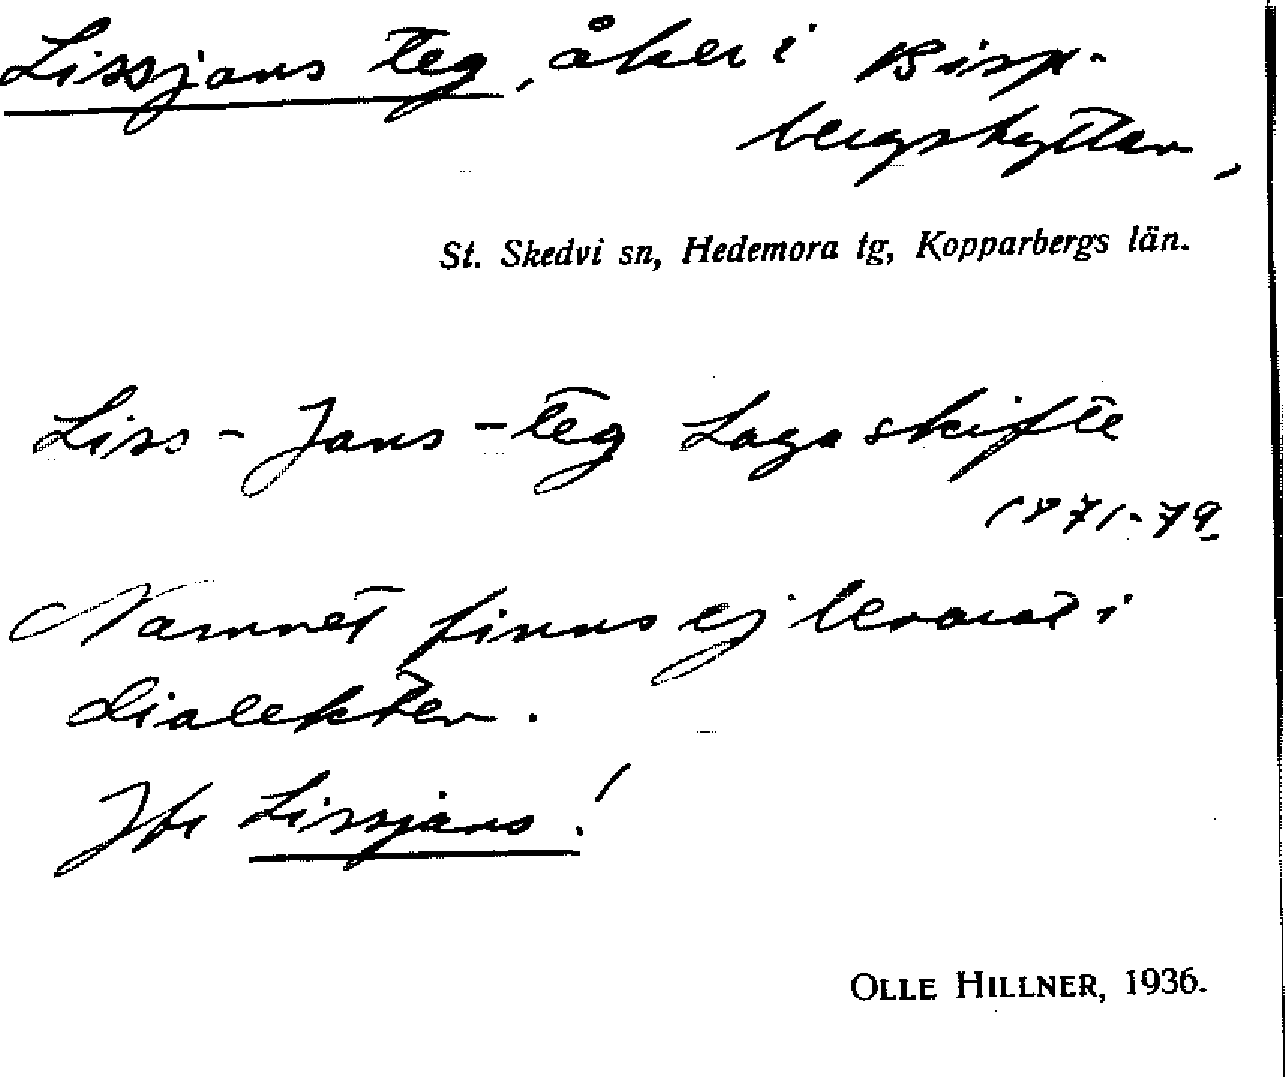 Lissjans teg, åker i Bisp-
bergshyttan,
St. Skedvi sn, Hedemora tg, Kopparbergs län.
Liss-Jans-teg Laga skifte
1871-79.
Namnet finns ej bevarat i
dialekten.
Jfr Lissjans!
OLLE HILLNER, 1936.